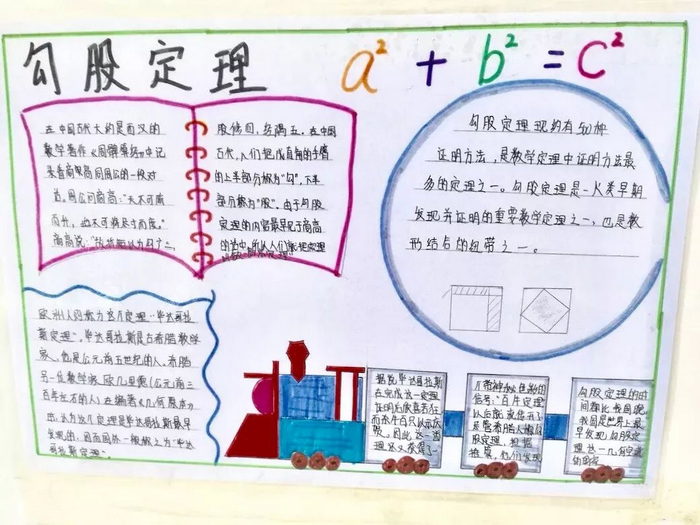 勾股定理 a² + b² = c²
在中国古代大约是西汉的
数学著作《周髀算经》中记
录着商高同周公的一段对
话。周公问商高:"天不可阶
而升,地不可将尺寸而度。"
商高说:"故折矩以为勾广三,
股修四,经隅五。在中国
古代,人们把成直角的手臂
的上半部分称为"勾",下半
部分称为"股"。由于勾股
定理的内容最早见于商高
的话中,所以人们就把定理
勾股定理现约有500种
证明方法,是数学定理中证明方法最
多的定理之一。勾股定理是人类早期
发现并证明的重要数学定理之一,也是数
形结合的纽带之一。
欧洲人则称为这个定理"毕达哥拉
斯定理"。毕达哥拉斯是古希腊数学
家,他是公元前五世纪的人。希腊
另一位数学家欧几里德(公元前三
百年左右的人)在编著《几何原本》
时,认为这个定理是毕达哥拉斯最早
发现的,因而国外一般称之为"毕达
哥拉斯定理"。
据说毕达哥拉斯
在完成这一定理
证明后欣喜若狂
而杀牛百只以示庆
贺。因此这一定
理还又获得了一
个带神秘色彩的
信号:"百牛定理"
股定理,
勾股定理的时
间都比我国晚,
我国是世界上最
早发现勾股定
理这一几何宝藏
的国家